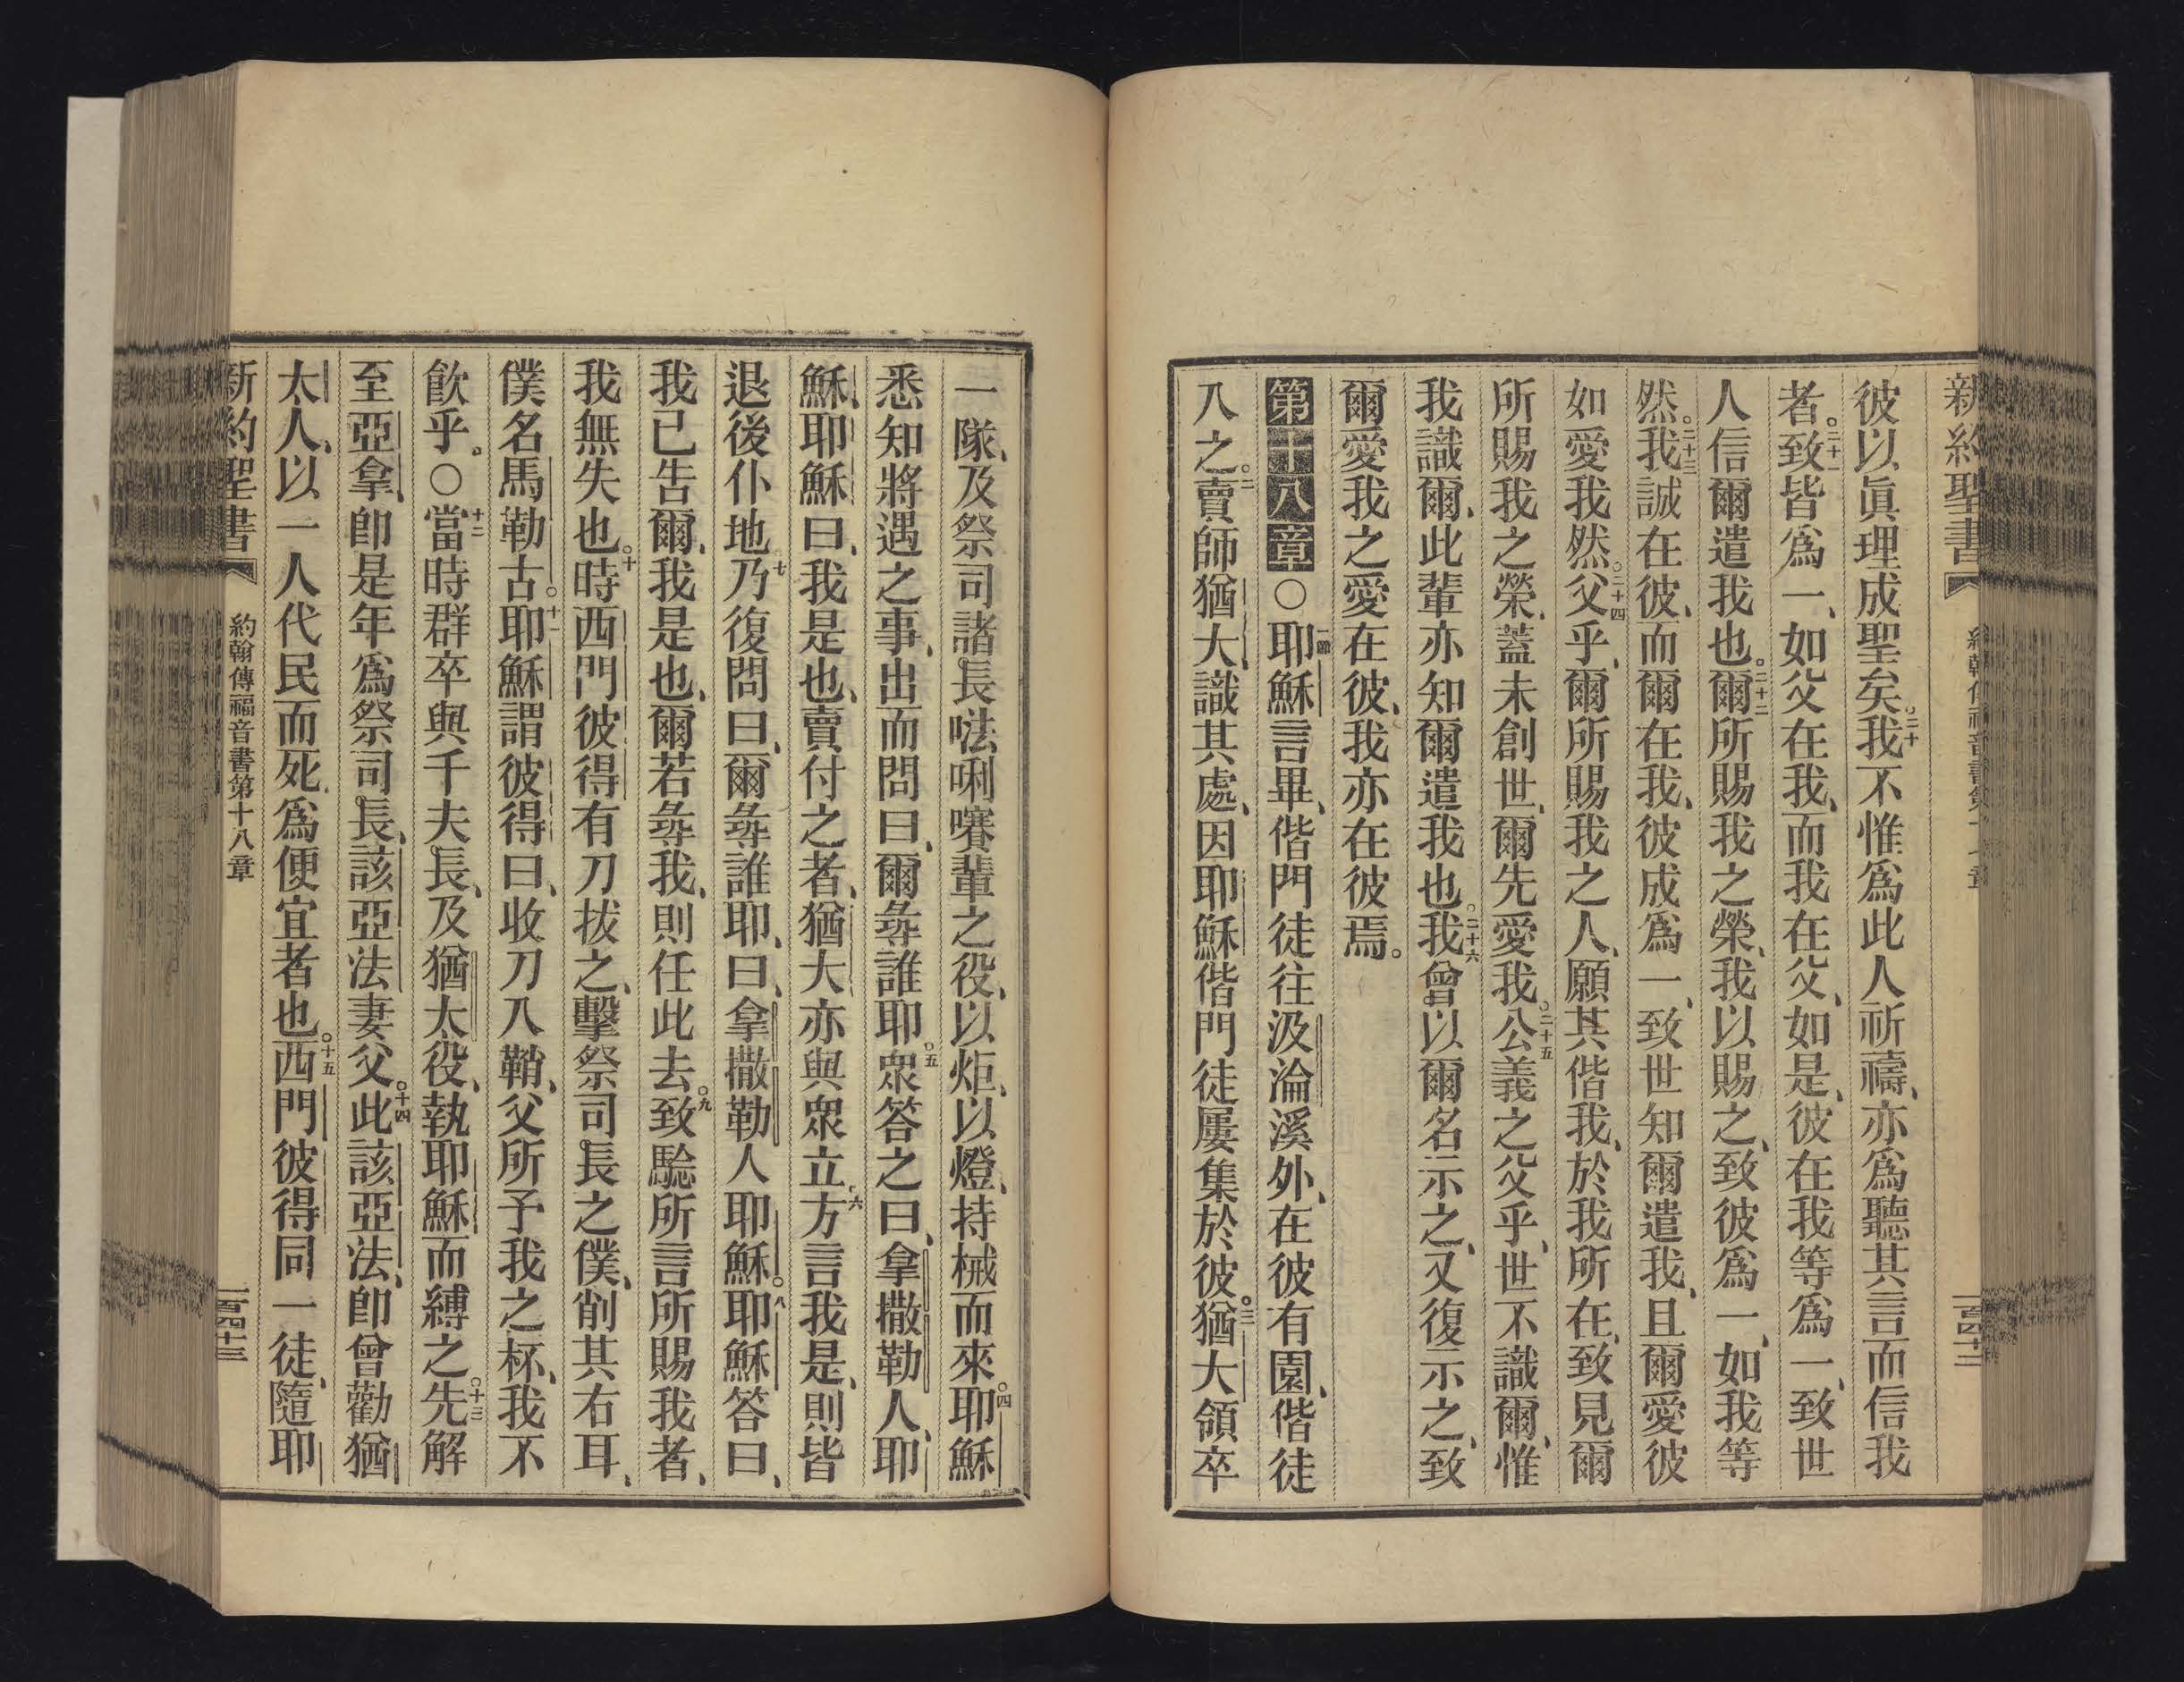 新約聖書
彼以眞理成聖矣。二十我不惟爲此人祈禱、亦爲聽其言而信我
者。二十一致皆爲一、如父在我、而我在父、如是、彼在我等爲一、致世
人信爾遣我也。二十二爾所賜我之榮、我以賜之、致彼爲一、如我等
然。二十三我誠在彼、而爾在我、彼成爲一、致世知爾遣我、且爾愛彼
如愛我然。二十四父乎、爾所賜我之人、願其偕我、於我所在、致見爾
所賜我之榮、蓋未創世、爾先愛我。二十五公義之父乎、世不識爾、惟
我識爾、此輩亦知爾遣我也。二十六我曾以爾名示之、又復示之、致
爾愛我之愛在彼、我亦在彼焉。
第十八章○一節耶穌言畢、偕門徒往汲淪溪外、在彼有園、偕徒
入之。二賣師猶大、識其處、因耶穌偕門徒屢集於彼。三猶大領卒
一隊、及祭司諸長𠵽唎㘔輩之役、以炬、以燈、持械而來。四耶穌
悉知將遇之事、出而問曰、爾尋誰耶。五衆答之曰、拿撒勒人、耶
穌、耶穌曰、我是也、賣付之者、猶大亦與衆立、六方言我是、則皆
退後仆地、七乃復問曰、爾尋誰耶、曰、拿撒勒人耶穌。八耶穌答曰、
我已告爾、我是也、爾若尋我、則任此去。九致驗所言所賜我者、
我無失也。十時西門彼得有刀拔之、擊祭司長之僕、削其右耳、
僕名馬勒古。十一耶穌謂彼得曰、收刀入鞘、父所予我之杯、我不
飲乎。○十二當時群卒與千夫長、及猶太役、執耶穌而縛之。十三先解
至亞拿、卽是年爲祭司長、該亞法妻父。十四此該亞法、卽曾勸猶
太人、以一人代民而死、爲便宜者也。十五西門彼得同一徒、隨耶
新約聖書 約翰傳福音書第十八章 一百四十三